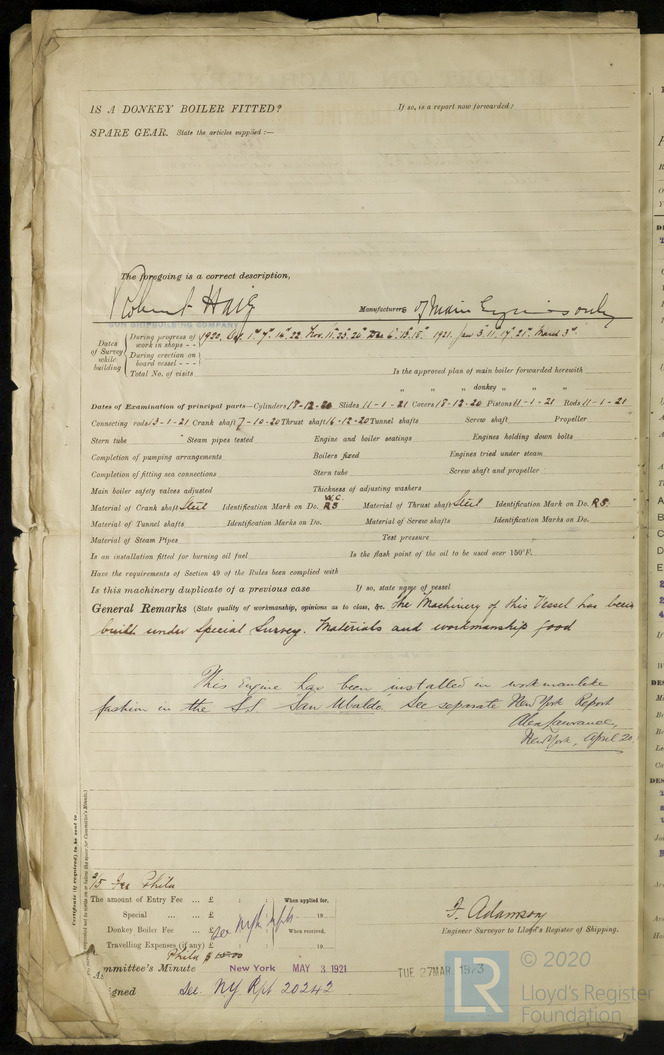 IS A DONKEY BOILER FITTED? If so, is a report now forwarded?
SPARE GEAR. State the articles supplied:—
The foregoing is a correct description,
Robert Haig Manufacturers of Main Engines only
SUN SHIPBUILDING COMPANY
Dates of Survey while building
During progress of work in shops - - 1920. 1st 7. 16th 22 Nov. 11. 23. 26th Dec 6. 13. 15. 1921. Jan 3. 11. 17. 21st March 3rd
During erection on board vessel - - -
Total No. of visits Is the approved plan of main boiler forwarded herewith
" " " donkey " " "
Dates of Examination of principal parts—Cylinders 18-12-20 Slides 11-1-21 Covers 18-12-20 Pistons 11-1-21 Rods 11-1-21
Connecting rods 3-1-21 Crank shaft 7-10-20 Thrust shaft 16-12-20 Tunnel shafts Screw shaft Propeller
Stern tube Steam pipes tested Engine and boiler seatings Engines holding down bolts
Completion of pumping arrangements Boilers fixed Engines tried under steam
Completion of fitting sea connections Stern tube Screw shaft and propeller
Main boiler safety valves adjusted Thickness of adjusting washers
Material of Crank shaft Steel Identification Mark on Do. W.C. RS Material of Thrust shaft Steel Identification Mark on Do. RS.
Material of Tunnel shafts Identification Marks on Do. Material of Screw shafts Identification Marks on Do.
Material of Steam Pipes Test pressure
Is an installation fitted for burning oil fuel Is the flash point of the oil to be used over 150°F.
Have the requirements of Section 49 of the Rules been complied with
Is this machinery duplicate of a previous case If so, state name of vessel
General Remarks (State quality of workmanship, opinions as to class, &c. The Machinery of this Vessel has been
built under Special Survey. Materials and workmanship good
This Engine has been installed in workmanlike
fashion in the S.S. San Ubaldo. See separate New York Report
Alex Lawrance,
New York, April 20.
Certificate (if required) to be sent to
2/5 Fee Phila
The amount of Entry Fee ... £ : : When applied for,
Special ... ... £ : : 19
Donkey Boiler Fee ... £ : : When received,
Travelling Expenses (if any) £ : : 19
Phila $
F. Adamson
Engineer Surveyor to Lloyd's Register of Shipping.
mmittee's Minute New York MAY 3 1921
TUE. 27 MAR 1923
gned See. NY Rpt 20242
© 2020
LR
Lloyd's Register
Foundation